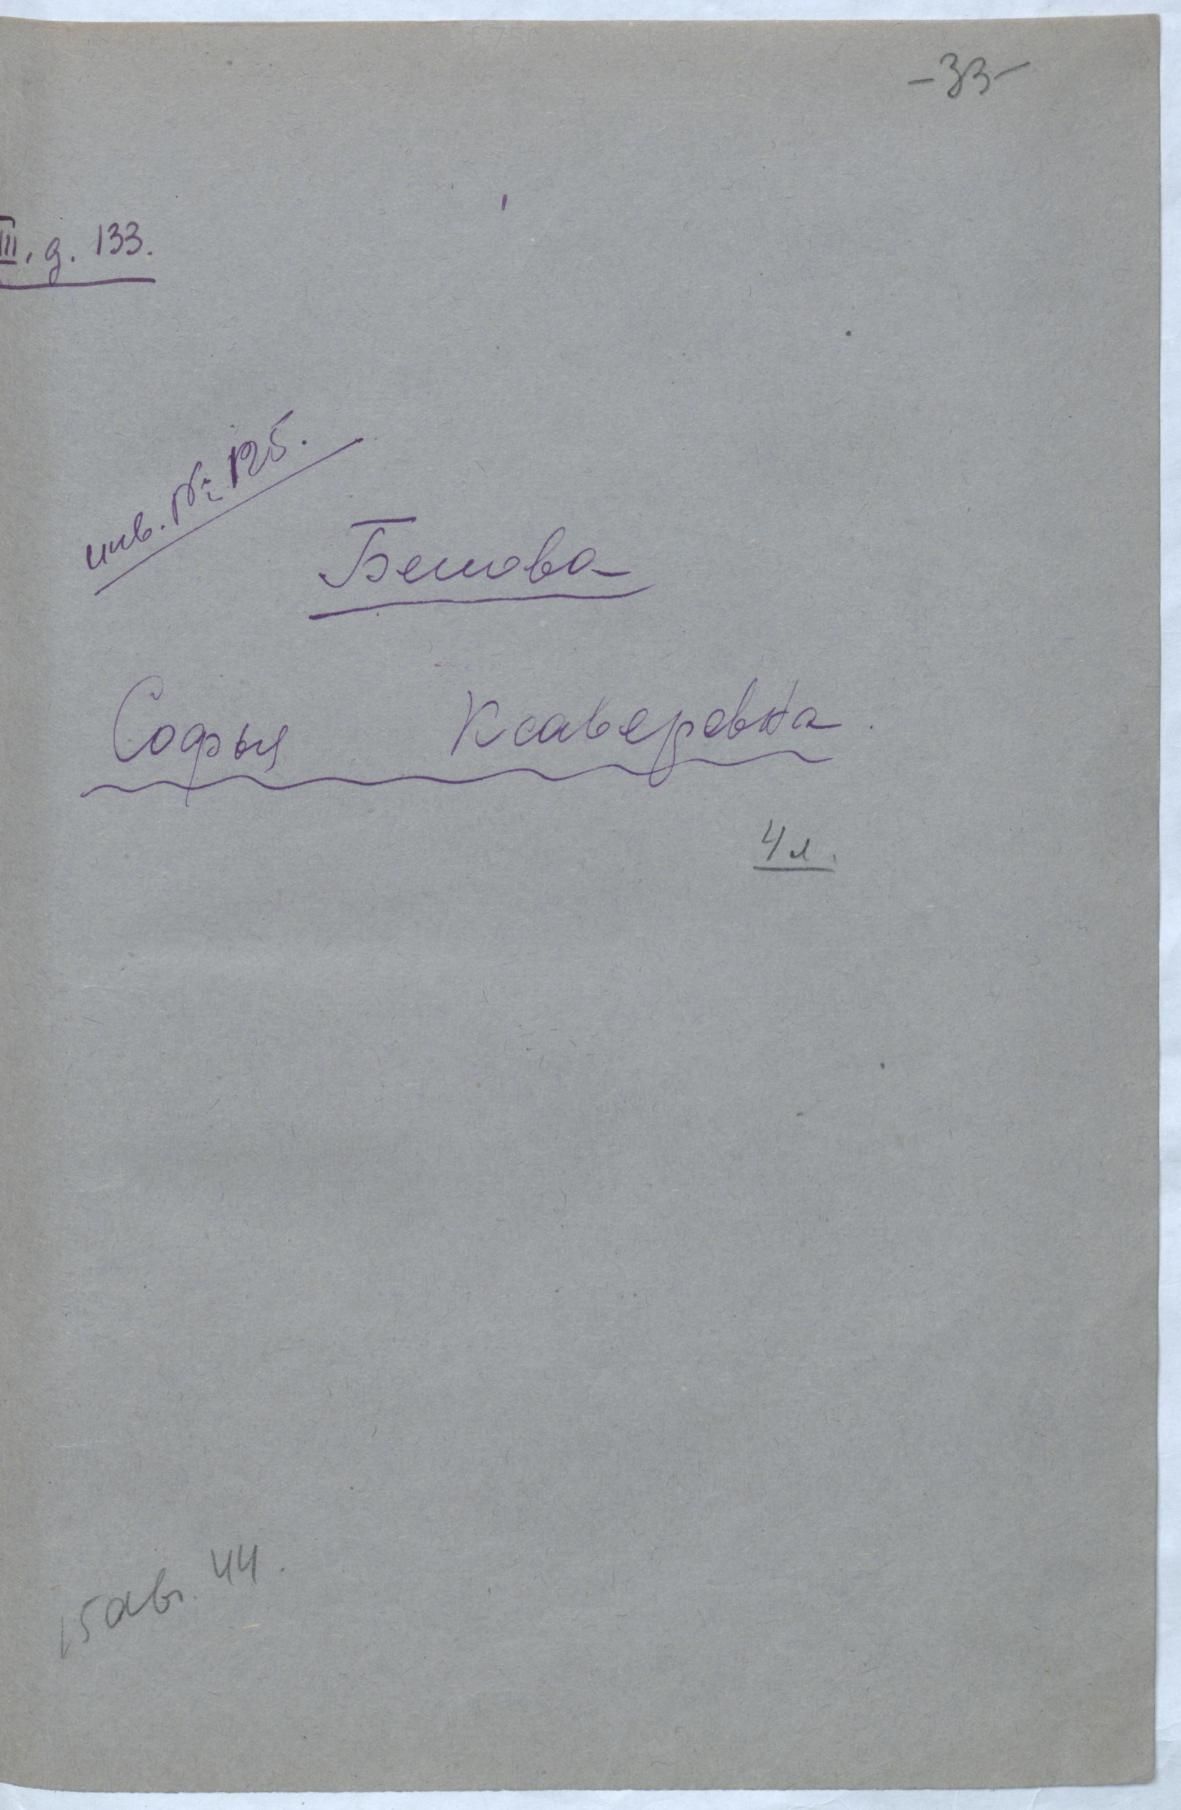 -33-
III, д. 133.
инв. № 125.
Бешова
Софья Ксаверевна.
4 л.
15 авг. 44.